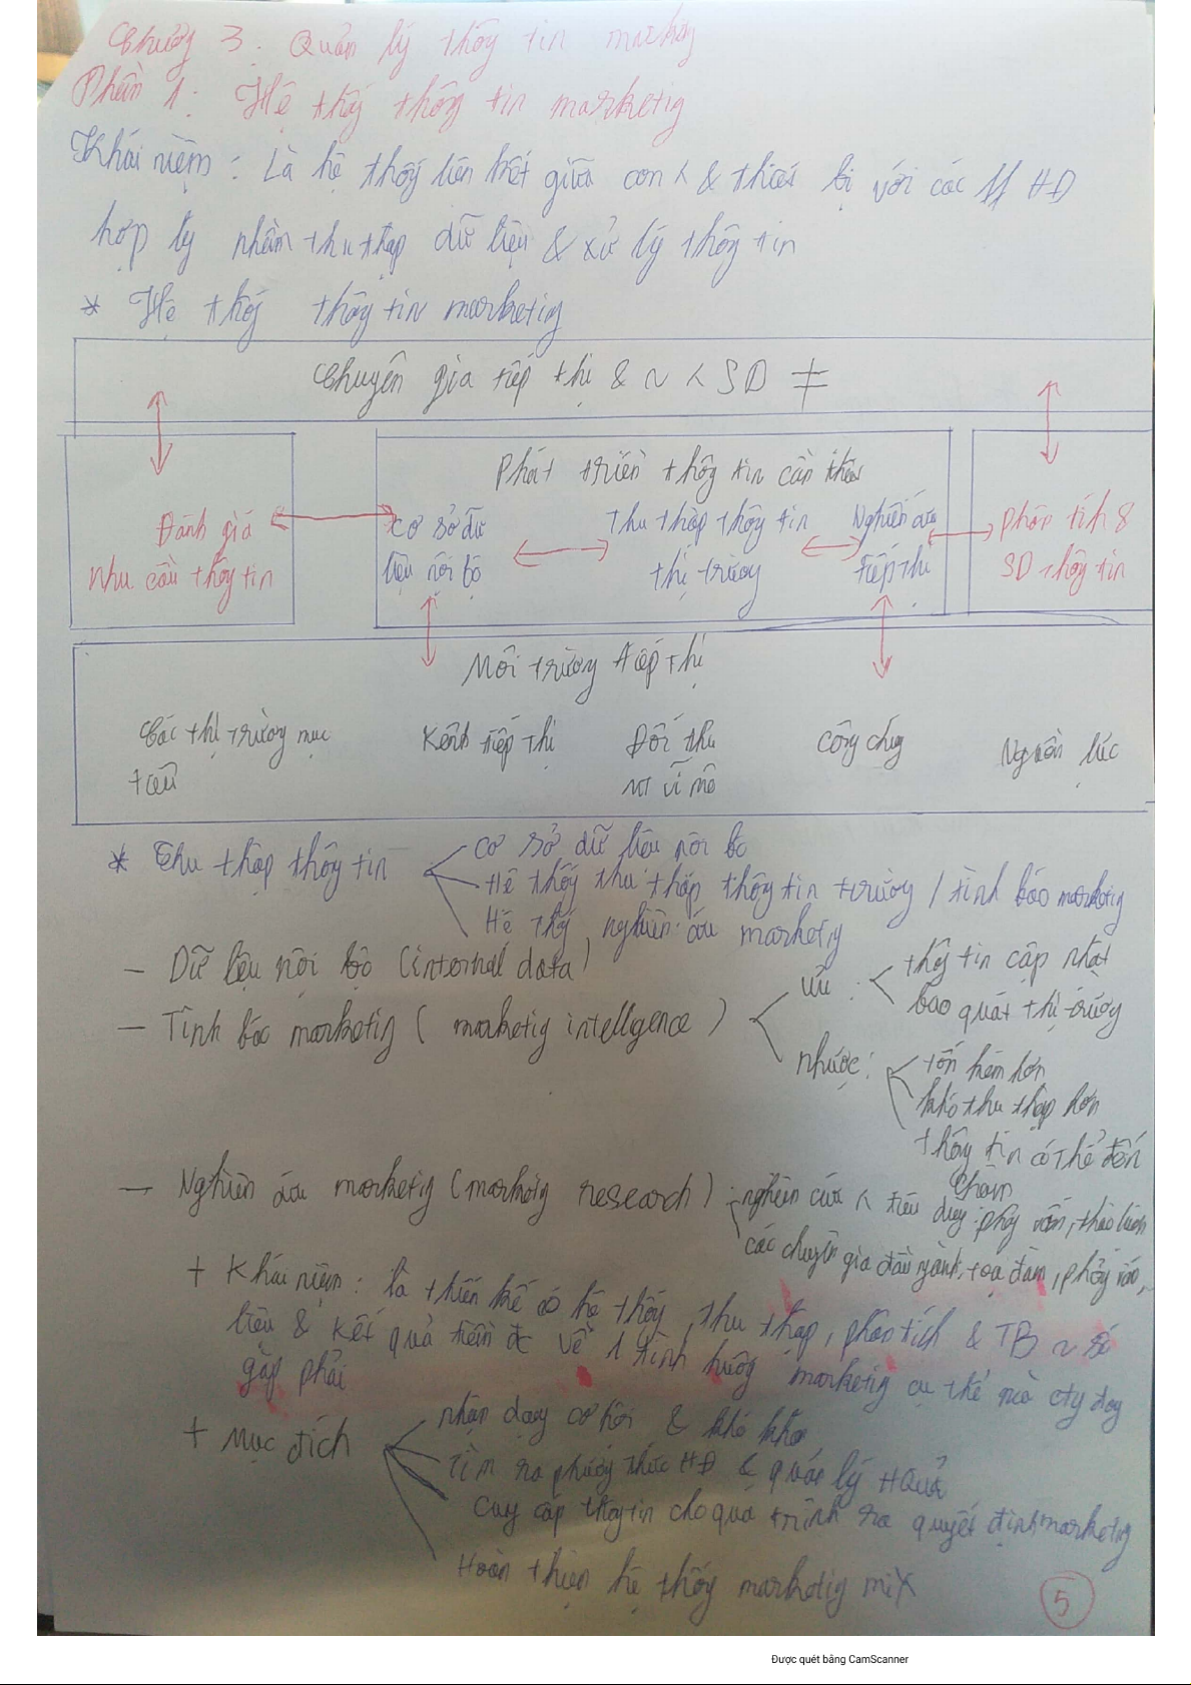 Chương 3. Quản lý thông tin marketing
Phần 1: Hệ thống thông tin marketing
Khái niệm: Là hệ thống liên kết giữa con < & thiết bị với các HĐ
hợp lý nhằm thu thập dữ liệu & xử lý thông tin
* Hệ thống thông tin marketing
Chuyên gia tiếp thị & ~ < SD ≠
Phát triển thông tin cần thiết
Đánh giá
nhu cầu thông tin
cơ sở dữ
liệu nội bộ
Thu thập thông tin
thị trường
Nghiên cứu
tiếp thị
Phân tích &
SD thông tin
Môi trường tiếp thị
Các thị trường mục
tiêu
Kênh tiếp thị
Đối thủ
MT vĩ mô
Công chúng
Nguồn lực
* Thu thập thông tin
Cơ sở dữ liệu nội bộ
Hệ thống thu thập thông tin trường / tình báo marketing
Hệ thống nghiên cứu marketing
- Dữ liệu nội bộ (internal data)
- Tình báo marketing (marketing intellgence)
ưu:
thông tin cập nhật
bao quát thị trường
nhược:
tốn kém hơn
khó thu thập hơn
thông tin có thể đến
chậm
- Nghiên cứu marketing (marketing research):
nghiên cứu < tiêu dùng: phỏng vấn, thảo luận
các chuyên gia đầu ngành, toạ đàm, phỏng vấn,
+ Khái niệm: là thiết kế có hệ thống, thu thập, phân tích & TB ~ số
liệu & kết quả tìm đc về 1 tình huống marketing cụ thể mà cty đang
gặp phải
+ Mục đích
nhận dạng cơ hội & khó khăn
Tìm ra phương thức HĐ & quản lý HQuả
Cung cấp thông tin cho quá trình ra quyết định marketing
Hoàn thiện hệ thống marketing mix
5
Được quét bằng CamScanner